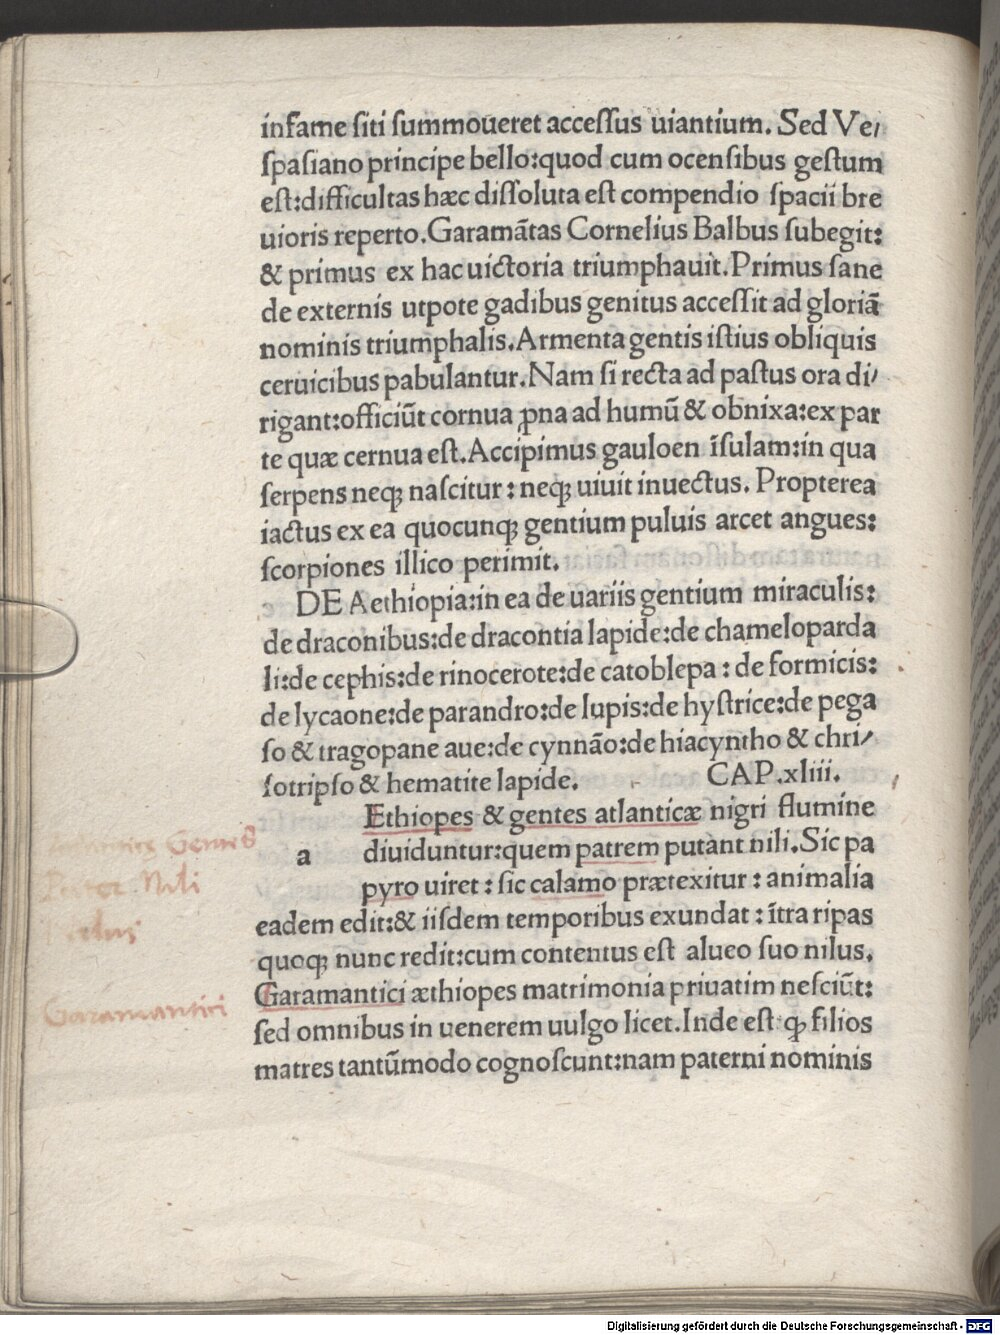 infame siti summoueret accessus uiantium. Sed Ve/
spasiano principe bello:quod cum ocensibus gestum
est:difficultas hæc dissoluta est compendio spacii bre
uioris reperto.Garamãtas Cornelius Balbus subegit:
& primus ex hac uictoria triumphauit.Primus sane
de externis utpote gadibus genitus accessit ad gloriã
nominis triumphalis.Armenta gentis istius obliquis
ceruicibus pabulantur.Nam si recta ad pastus ora di/
rigant:officiũt cornua ꝓna ad humũ & obnixa:ex par
te quæ cernua est.Accipimus gauloen ĩsulam:in qua
serpens neqꝫ nascitur : neqꝫ uiuit inuectus. Propterea
iactus ex ea quocunqꝫ gentium puluis arcet angues:
scorpiones illico perimit.
DE Aethiopia:in ea de uariis gentium miraculis:
de draconibus:de dracontia lapide:de chameloparda
li:de cephis:de rinocerote:de catoblepa : de formicis:
de lycaone:de parandro:de lupis:de hystrice:de pega
so & tragopane aue:de cynnão:de hiacyntho & chri/
sotripso & hematite lapide. CAP.xliii.
Ethiopes & gentes atlanticæ nigri flumine
a diuiduntur:quem patrem putant nili.Sic pa
pyro uiret : sic calamo prætexitur : animalia
eadem edit:& iisdem temporibus exundat : ĩtra ripas
quoqꝫ nunc redit:cum contentus est alueo suo nilus.
Garamantici æthiopes matrimonia priuatim nesciũt:
sed omnibus in uenerem uulgo licet.Inde est ꝙ filios
matres tantũmodo cognoscunt:nam paterni nominis
Gentes
Pater Nili
Garamantici
Digitalisierung gefördert durch die Deutsche Forschungsgemeinschaft - DFG